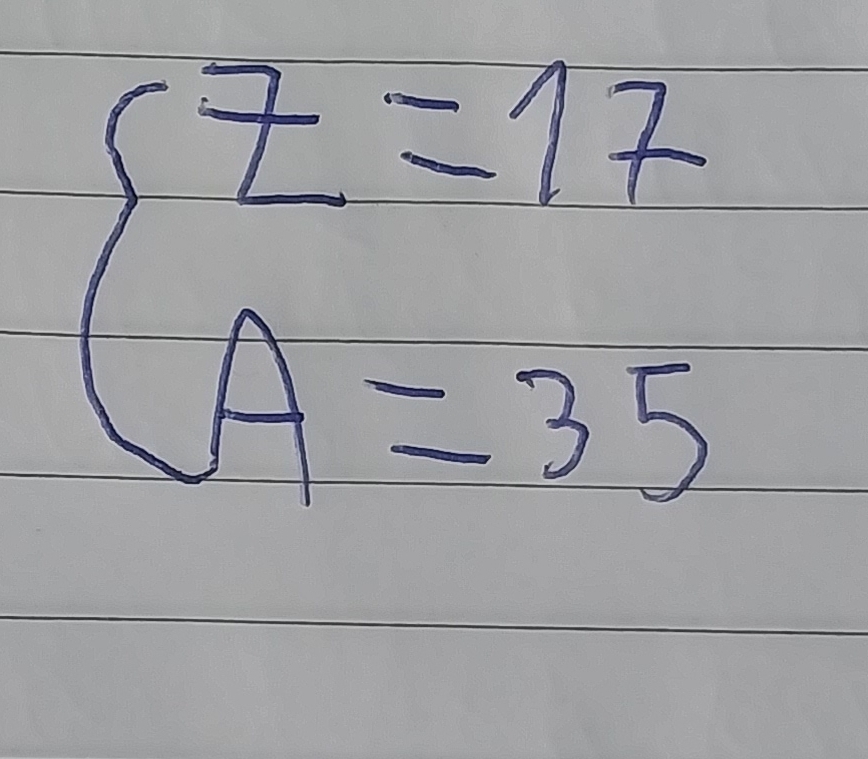 Z = 17
A = 35